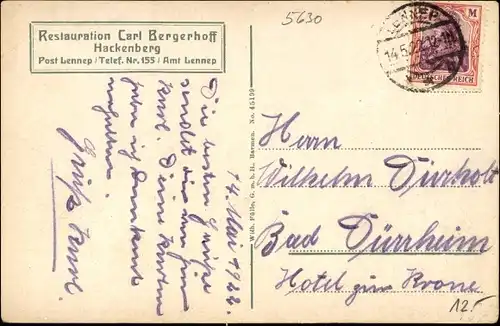 5630
Restauration Carl Bergerhoff
Hackenberg
Post Lennep / Telef. Nr. 155 / Amt Lennep
LENNEP
14.5.22
M
DEUTSCHES REICH
14. Mai 1922.
Die besten Grüße
sendet dir
Deine Karten
habe ich dankend
erhalten
Gruß
Wilh. Fülle, G. m. b. H., Barmen. No. 45199
Herrn
Wilhelm Dürholt
Bad Dürrheim
Hotel zur Krone
12.-